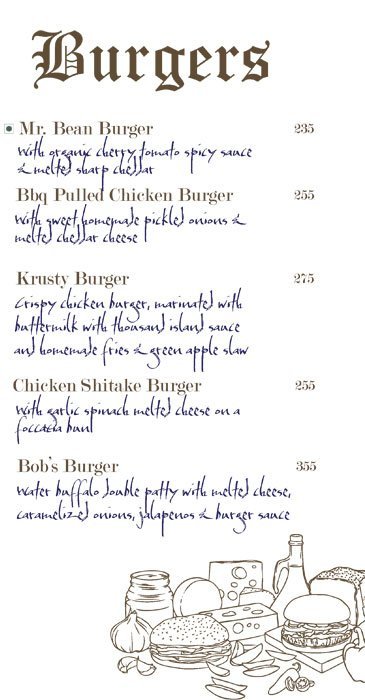 Burgers
Mr. Bean Burger 235
With organic cherry tomato spicy sauce
& melted sharp cheddar
Bbq Pulled Chicken Burger 255
With sweet homemade pickled onions &
melted cheddar cheese
Krusty Burger 275
Crispy chicken burger, marinated with
buttermilk with thousand island sauce
and homemade fries & green apple slaw
Chicken Shitake Burger 255
With garlic spinach melted cheese on a
foccacia bun
Bob's Burger 355
Water buffalo double patty with melted cheese,
caramelized onions, jalapenos & burger sauce